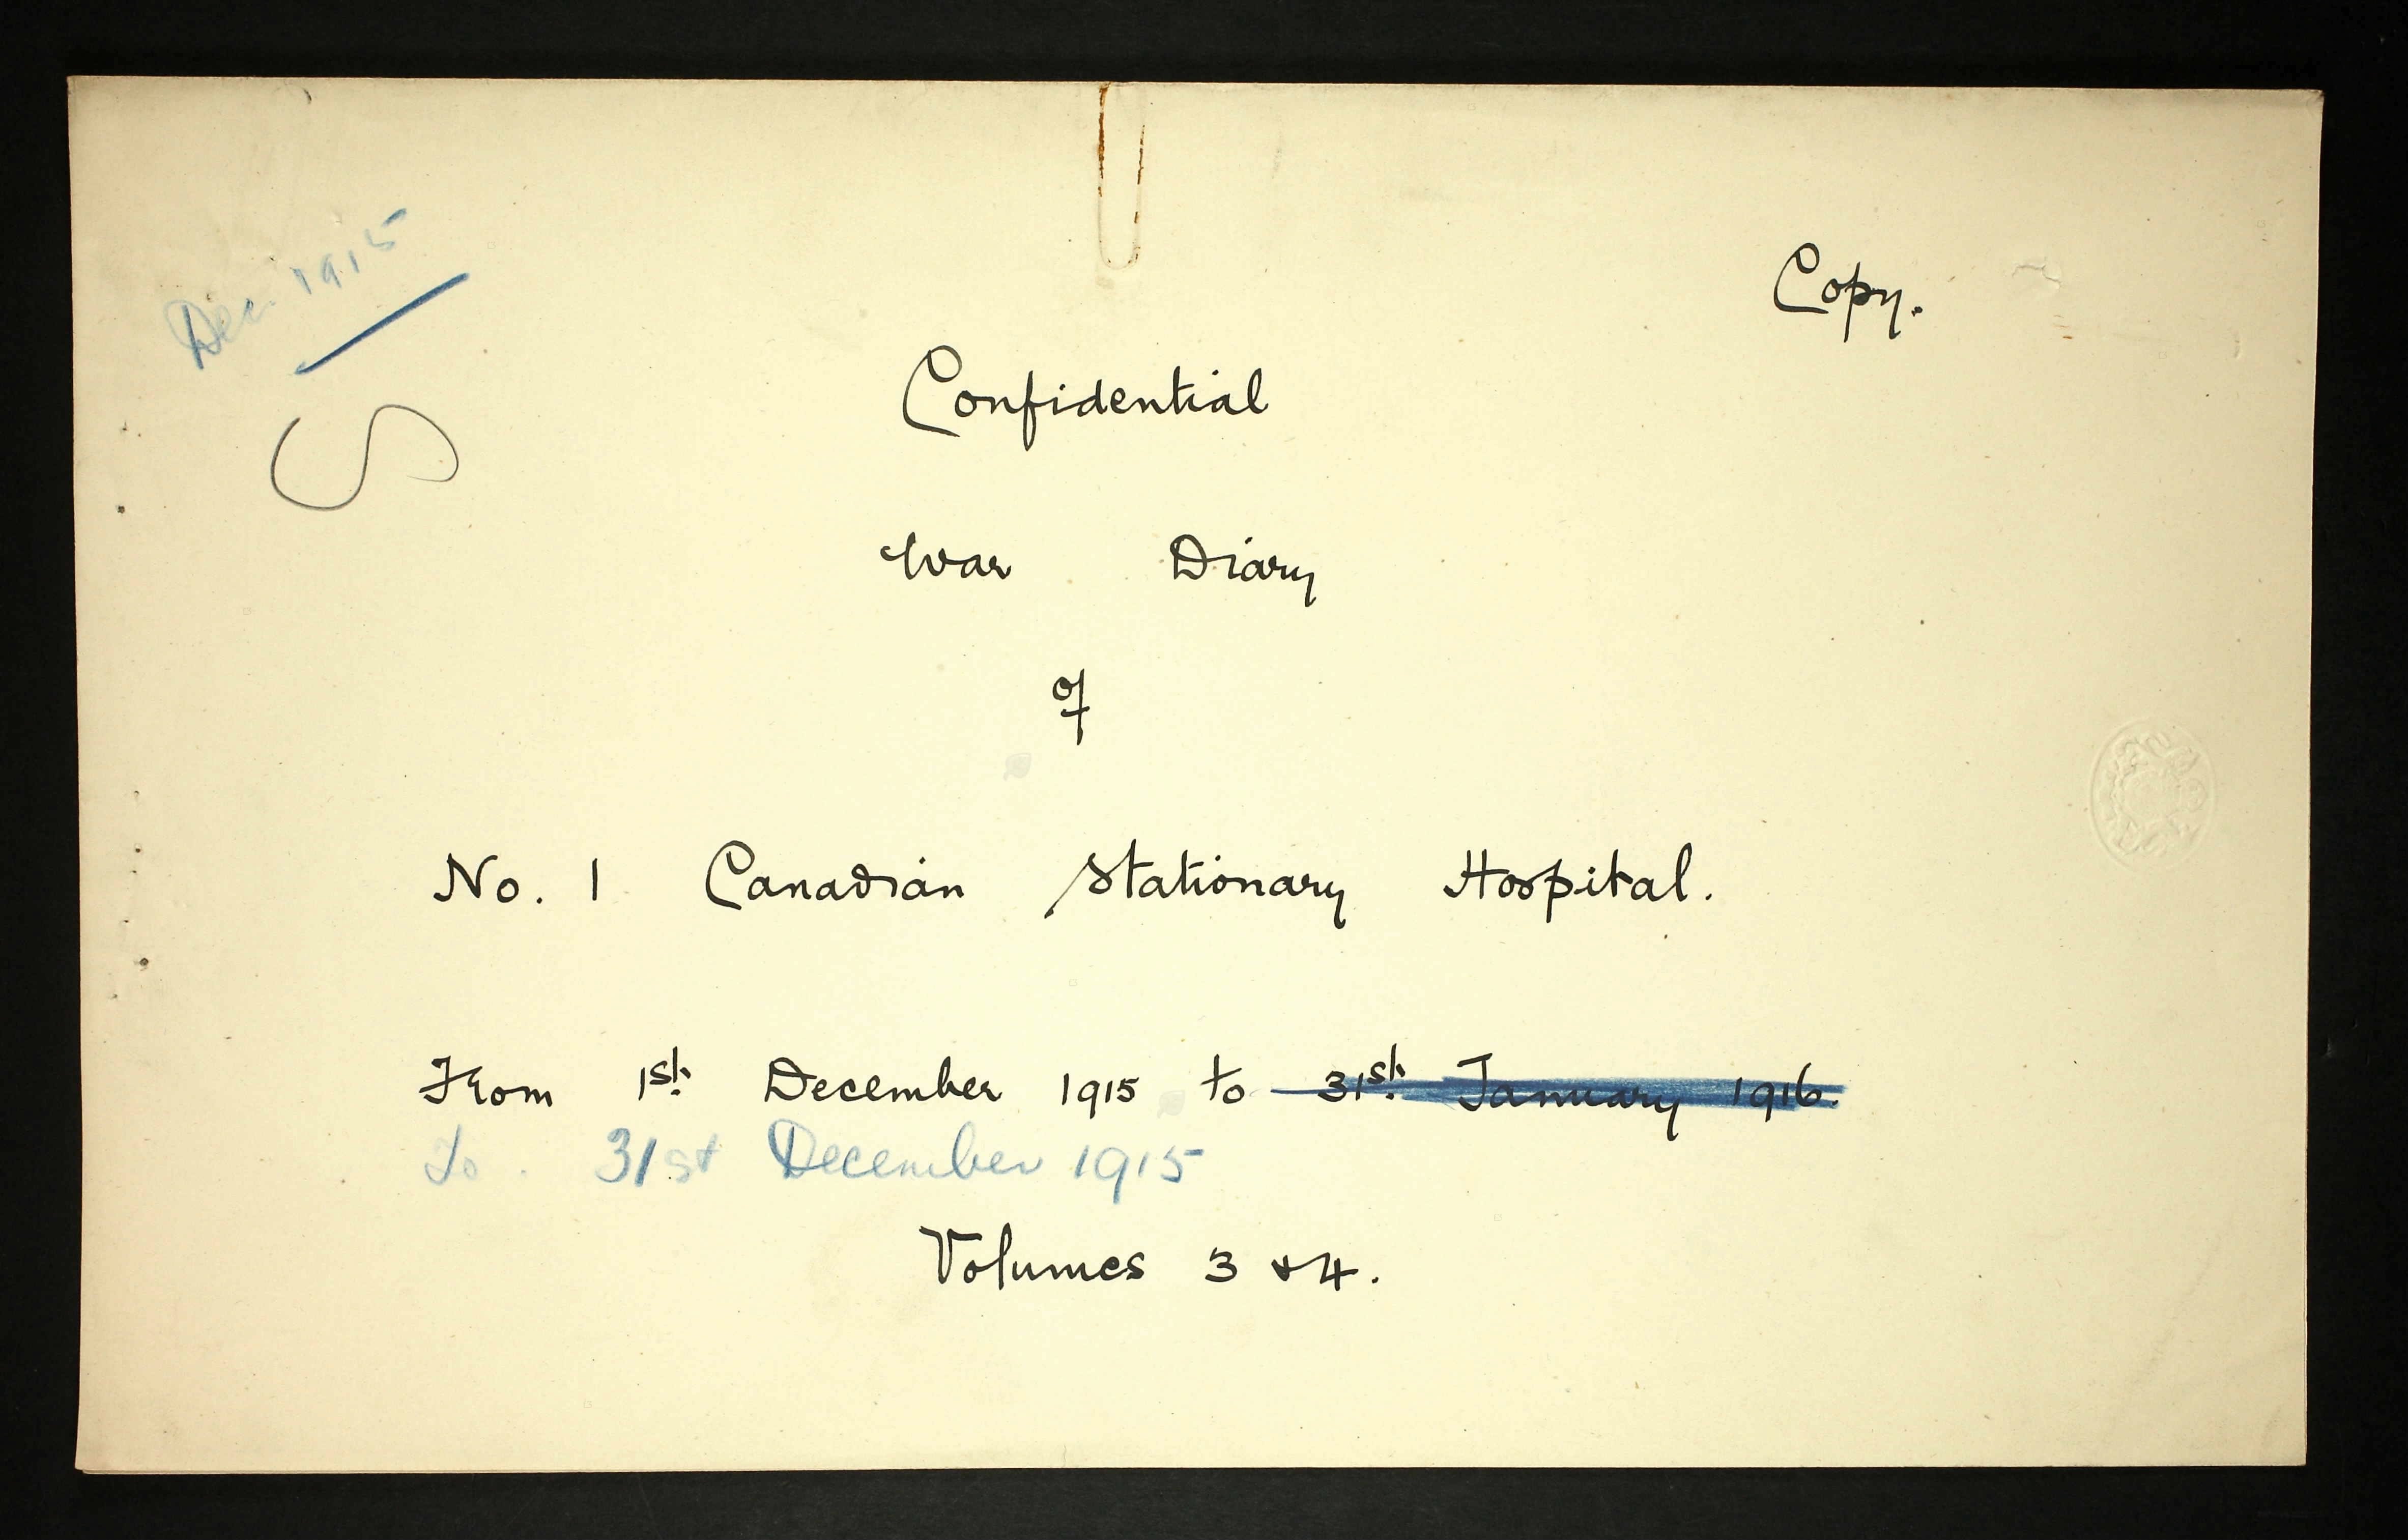 Dec. 1915
Copy.
S
Confidential
War Diary
of
No. 1 Canadian Stationary Hospital.
From 1st December 1915 to 31st January 1916.
To. 31st December 1915
Volumes 3 & 4.